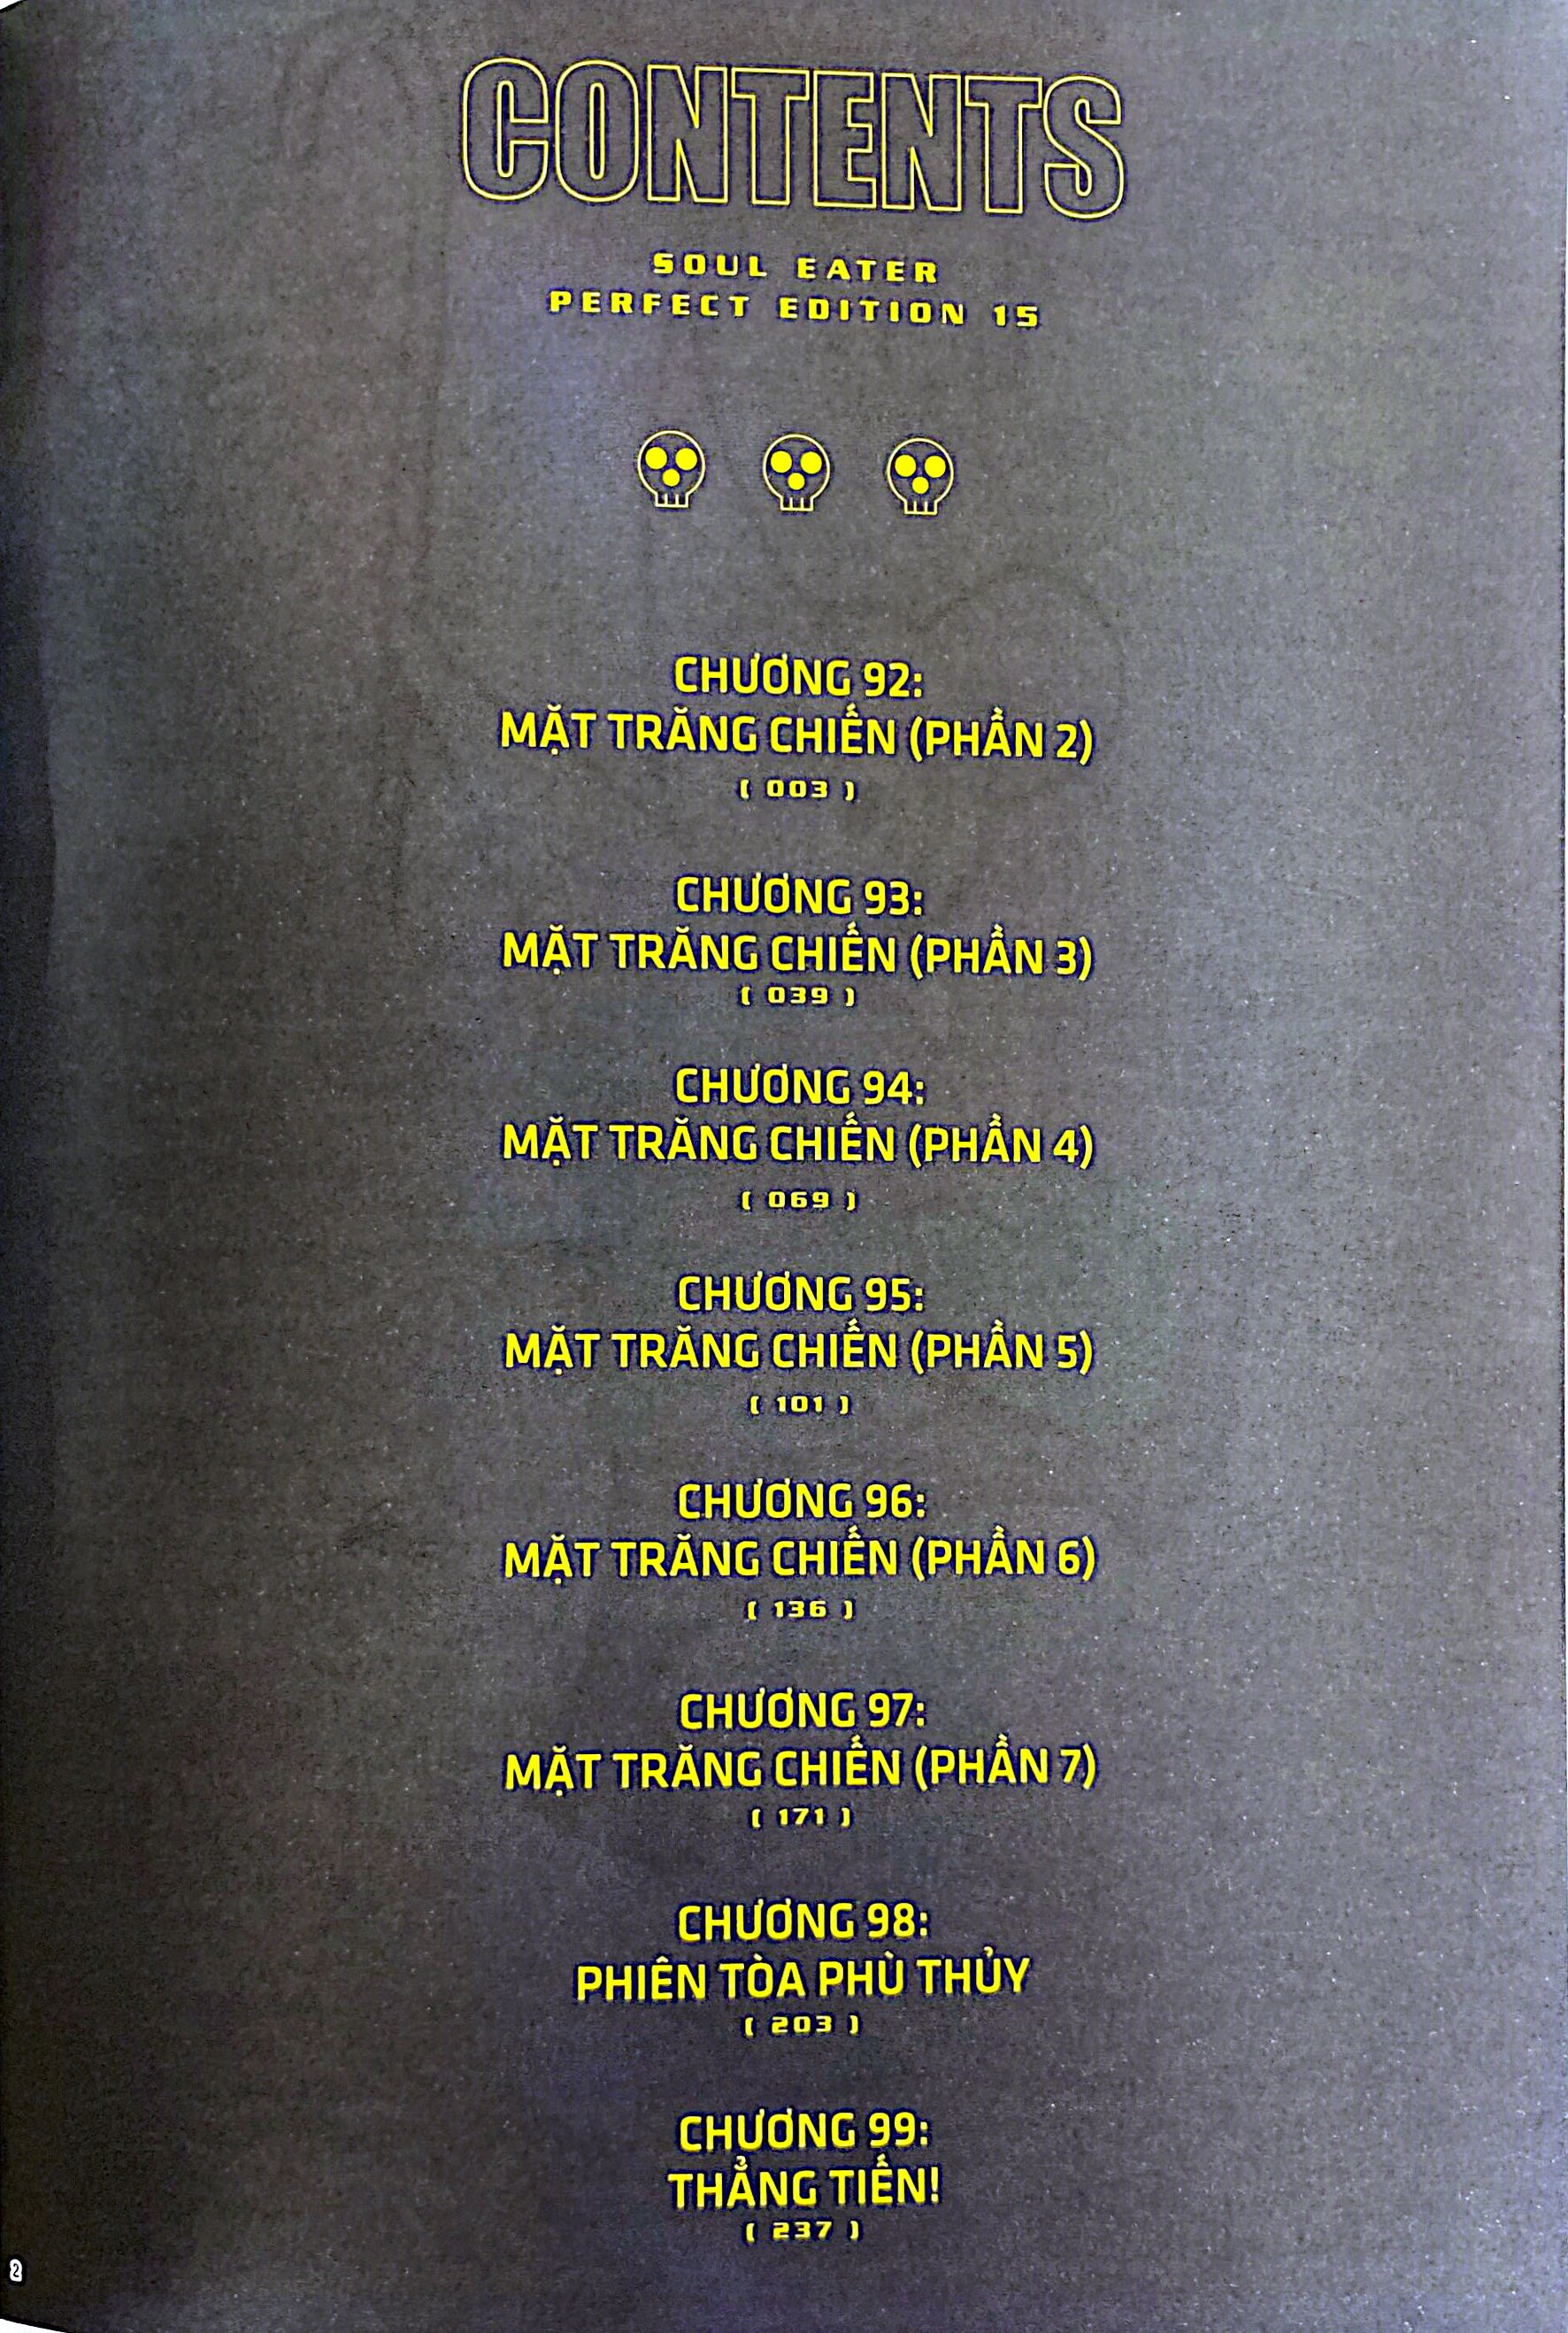 CONTENTS
SOUL EATER
PERFECT EDITION 15
CHƯƠNG 92:
MẶT TRĂNG CHIẾN (PHẦN 2)
( 003 )
CHƯƠNG 93:
MẶT TRĂNG CHIẾN (PHẦN 3)
( 039 )
CHƯƠNG 94:
MẶT TRĂNG CHIẾN (PHẦN 4)
( 069 )
CHƯƠNG 95:
MẶT TRĂNG CHIẾN (PHẦN 5)
( 101 )
CHƯƠNG 96:
MẶT TRĂNG CHIẾN (PHẦN 6)
( 136 )
CHƯƠNG 97:
MẶT TRĂNG CHIẾN (PHẦN 7)
( 171 )
CHƯƠNG 98:
PHIÊN TÒA PHÙ THỦY
( 203 )
CHƯƠNG 99:
THẲNG TIẾN!
( 237 )
2